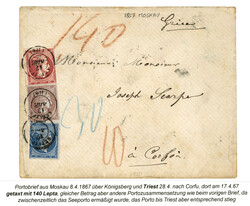 140
Grèce
A Monsieur Monsieur
Joseph Scarpe
à Corfou
10
Portobrief aus Moskau 8.4.1867 über Königsberg und Triest 28.4. nach Corfu, dort am 17.4.67
getaxt mit 140 Lepta, gleicher Betrag aber andere Portozusammensetzung wie beim vorigen Brief, da
zwischenzeitlich das Seeporto ermäßigt wurde, das Porto bis Triest aber entsprechend stieg